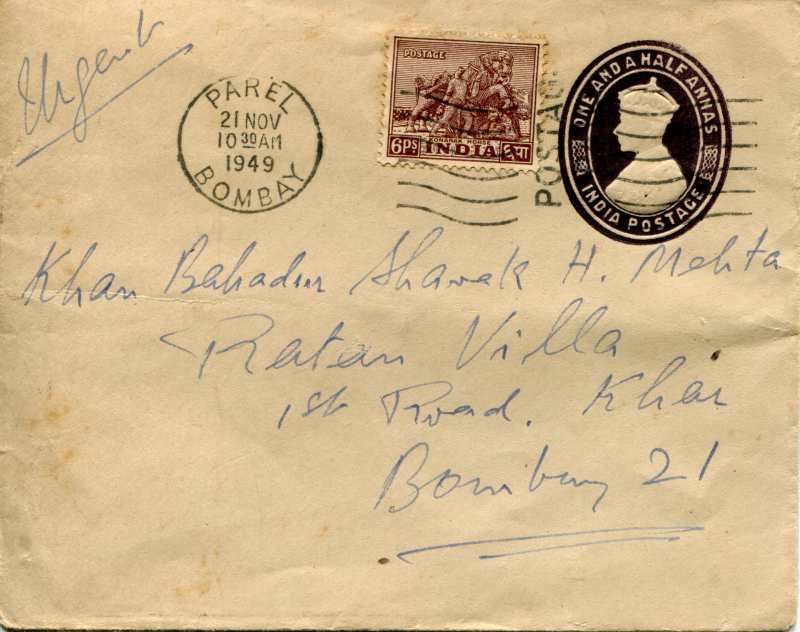 Urgent
PAREL
21 NOV
10 30 AM
1949
BOMBAY
POSTAGE
KONARAK HORSE
6Ps INDIA ६पा
POSTAG
ONE AND A HALF ANNAS
INDIA POSTAGE
Khan Bahadur Shavak H. Mehta
Ratan Villa
1st Road. Khar
Bombay 21